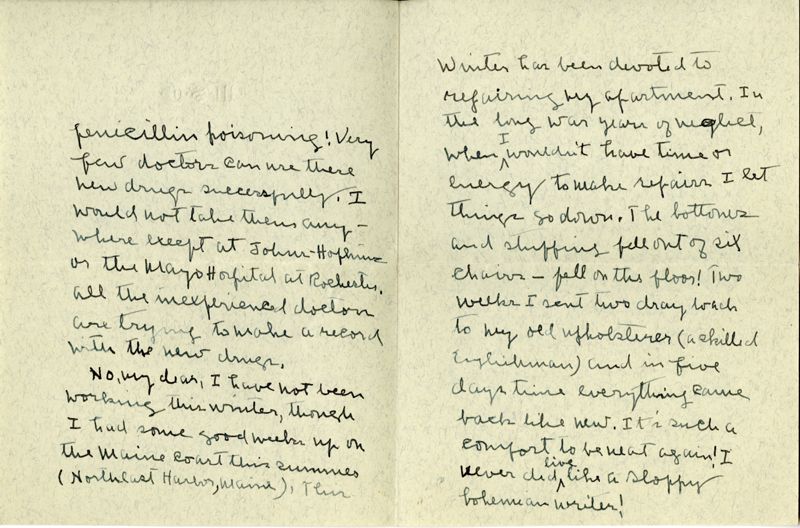 penicillin poisoning! Very
few doctors can use these
new drugs successfully. I
would not take them any-
where except at Johns-Hopkins
or the Mayo Hospital at Rochester.
All the inexperienced doctors
are trying to make a record
with the new drugs.
No, my dear, I have not been
working this winter, though
I had some good weeks up on
the Maine coast this summer
(Northeast Harbor, Maine). This
Winter has been devoted to
repairing my apartment. In
the long war years of neglect,
when I wouldn't have time or
energy to make repairs I let
things go down. The bottoms
and stuffing fell out of six
chairs — fell on the floor! Two
weeks I sent two dray loads
to my old upholsterer (a skilled
Englishman) and in five
days time everything came
back like new. It's such a
comfort to be neat again! I
never did live like a sloppy
bohemian writer!